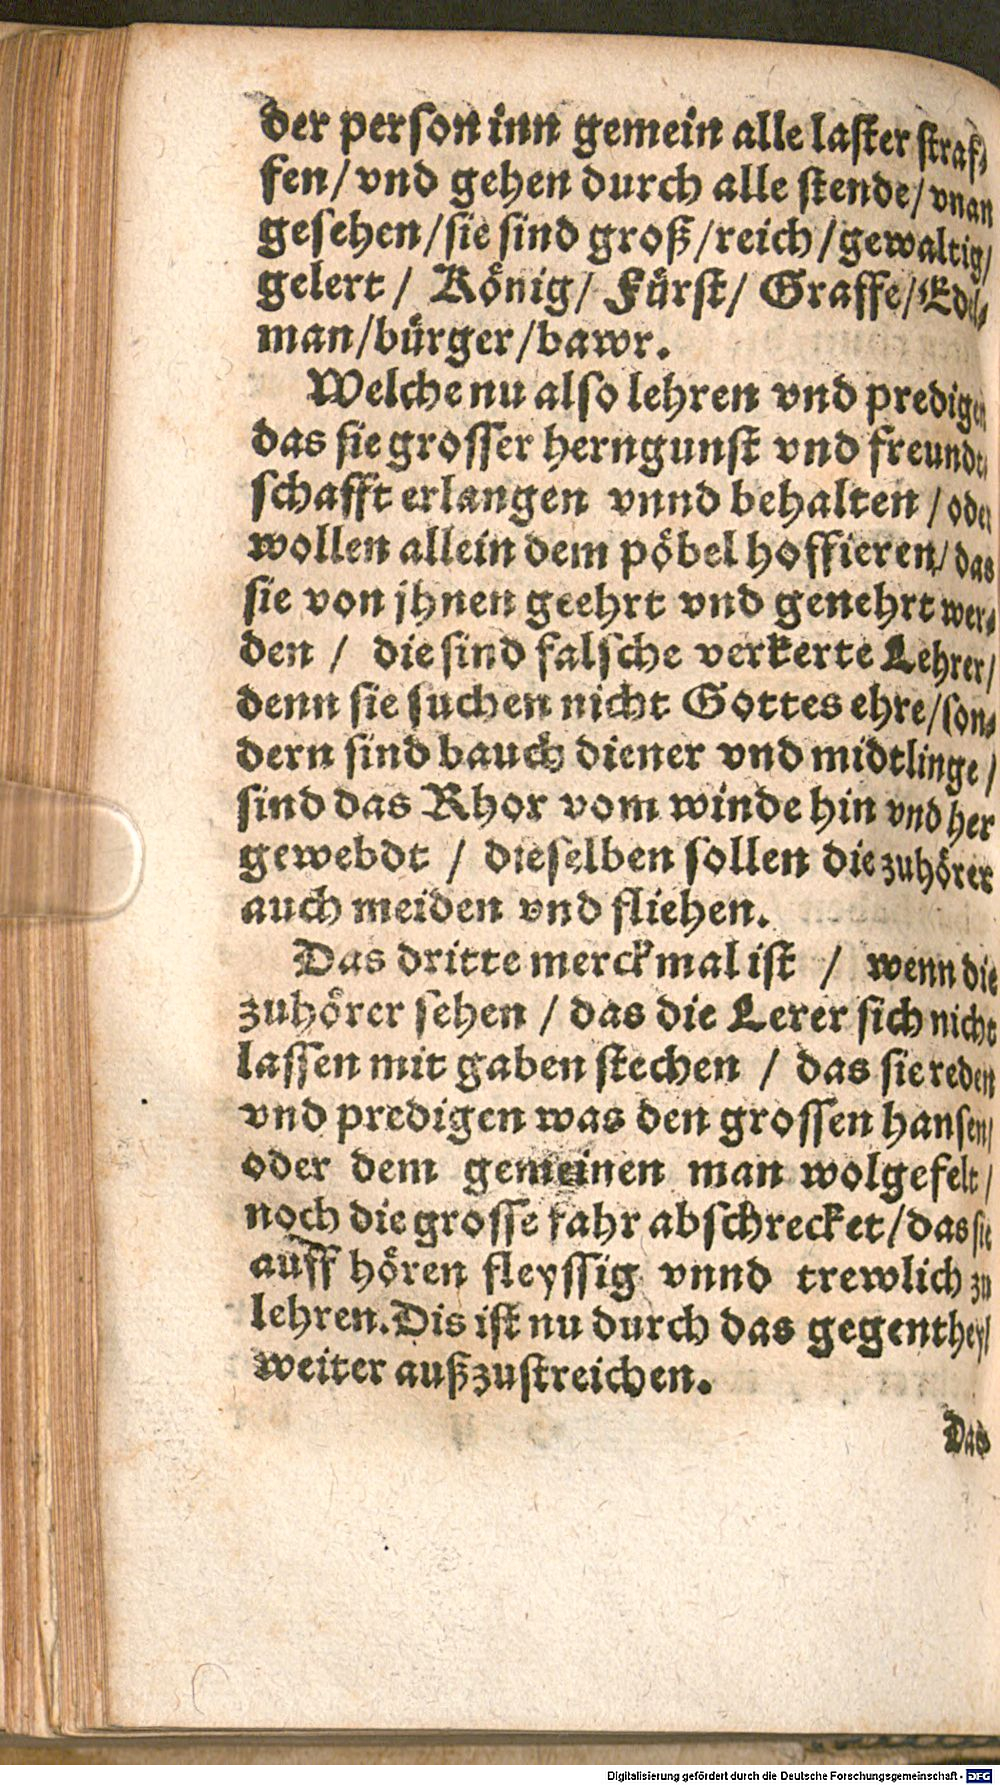 der person inn gemein alle laster straf⸗
fen/vnd gehen durch alle stende/vnan
gesehen/sie sind groß/reich/gewaltig/
gelert/ König/ Fürst/ Graffe/Edel⸗
man/bürger/bawr.
Welche nu also lehren vnd predigen
das sie grosser herngunst vnd freundt⸗
schafft erlangen vnnd behalten/oder
wollen allein dem pöbel hoffieren/das
sie von jhnen geehrt vnd genehrt wer⸗
den/ die sind falsche verkerte Lehrer/
denn sie suchen nicht Gottes ehre/son⸗
dern sind bauch diener vnd midtlinge/
sind das Rhor vom winde hin vnd her
gewebdt/ dieselben sollen die zuhörer
auch meiden vnd fliehen.
Das dritte merckmal ist/ wenn die
zuhörer sehen/das die Lerer sich nicht
lassen mit gaben stechen/ das sie reden
vnd predigen was den grossen hansen/
oder dem gemeinen man wolgefelt/
noch die grosse fahr abschrecket/das sie
auff hören fleyssig vnnd trewlich zu
lehren. Dis ist nu durch das gegentheyl
weiter außzustreichen.
Das
Digitalisierung gefördert durch die Deutsche Forschungsgemeinschaft - DFG